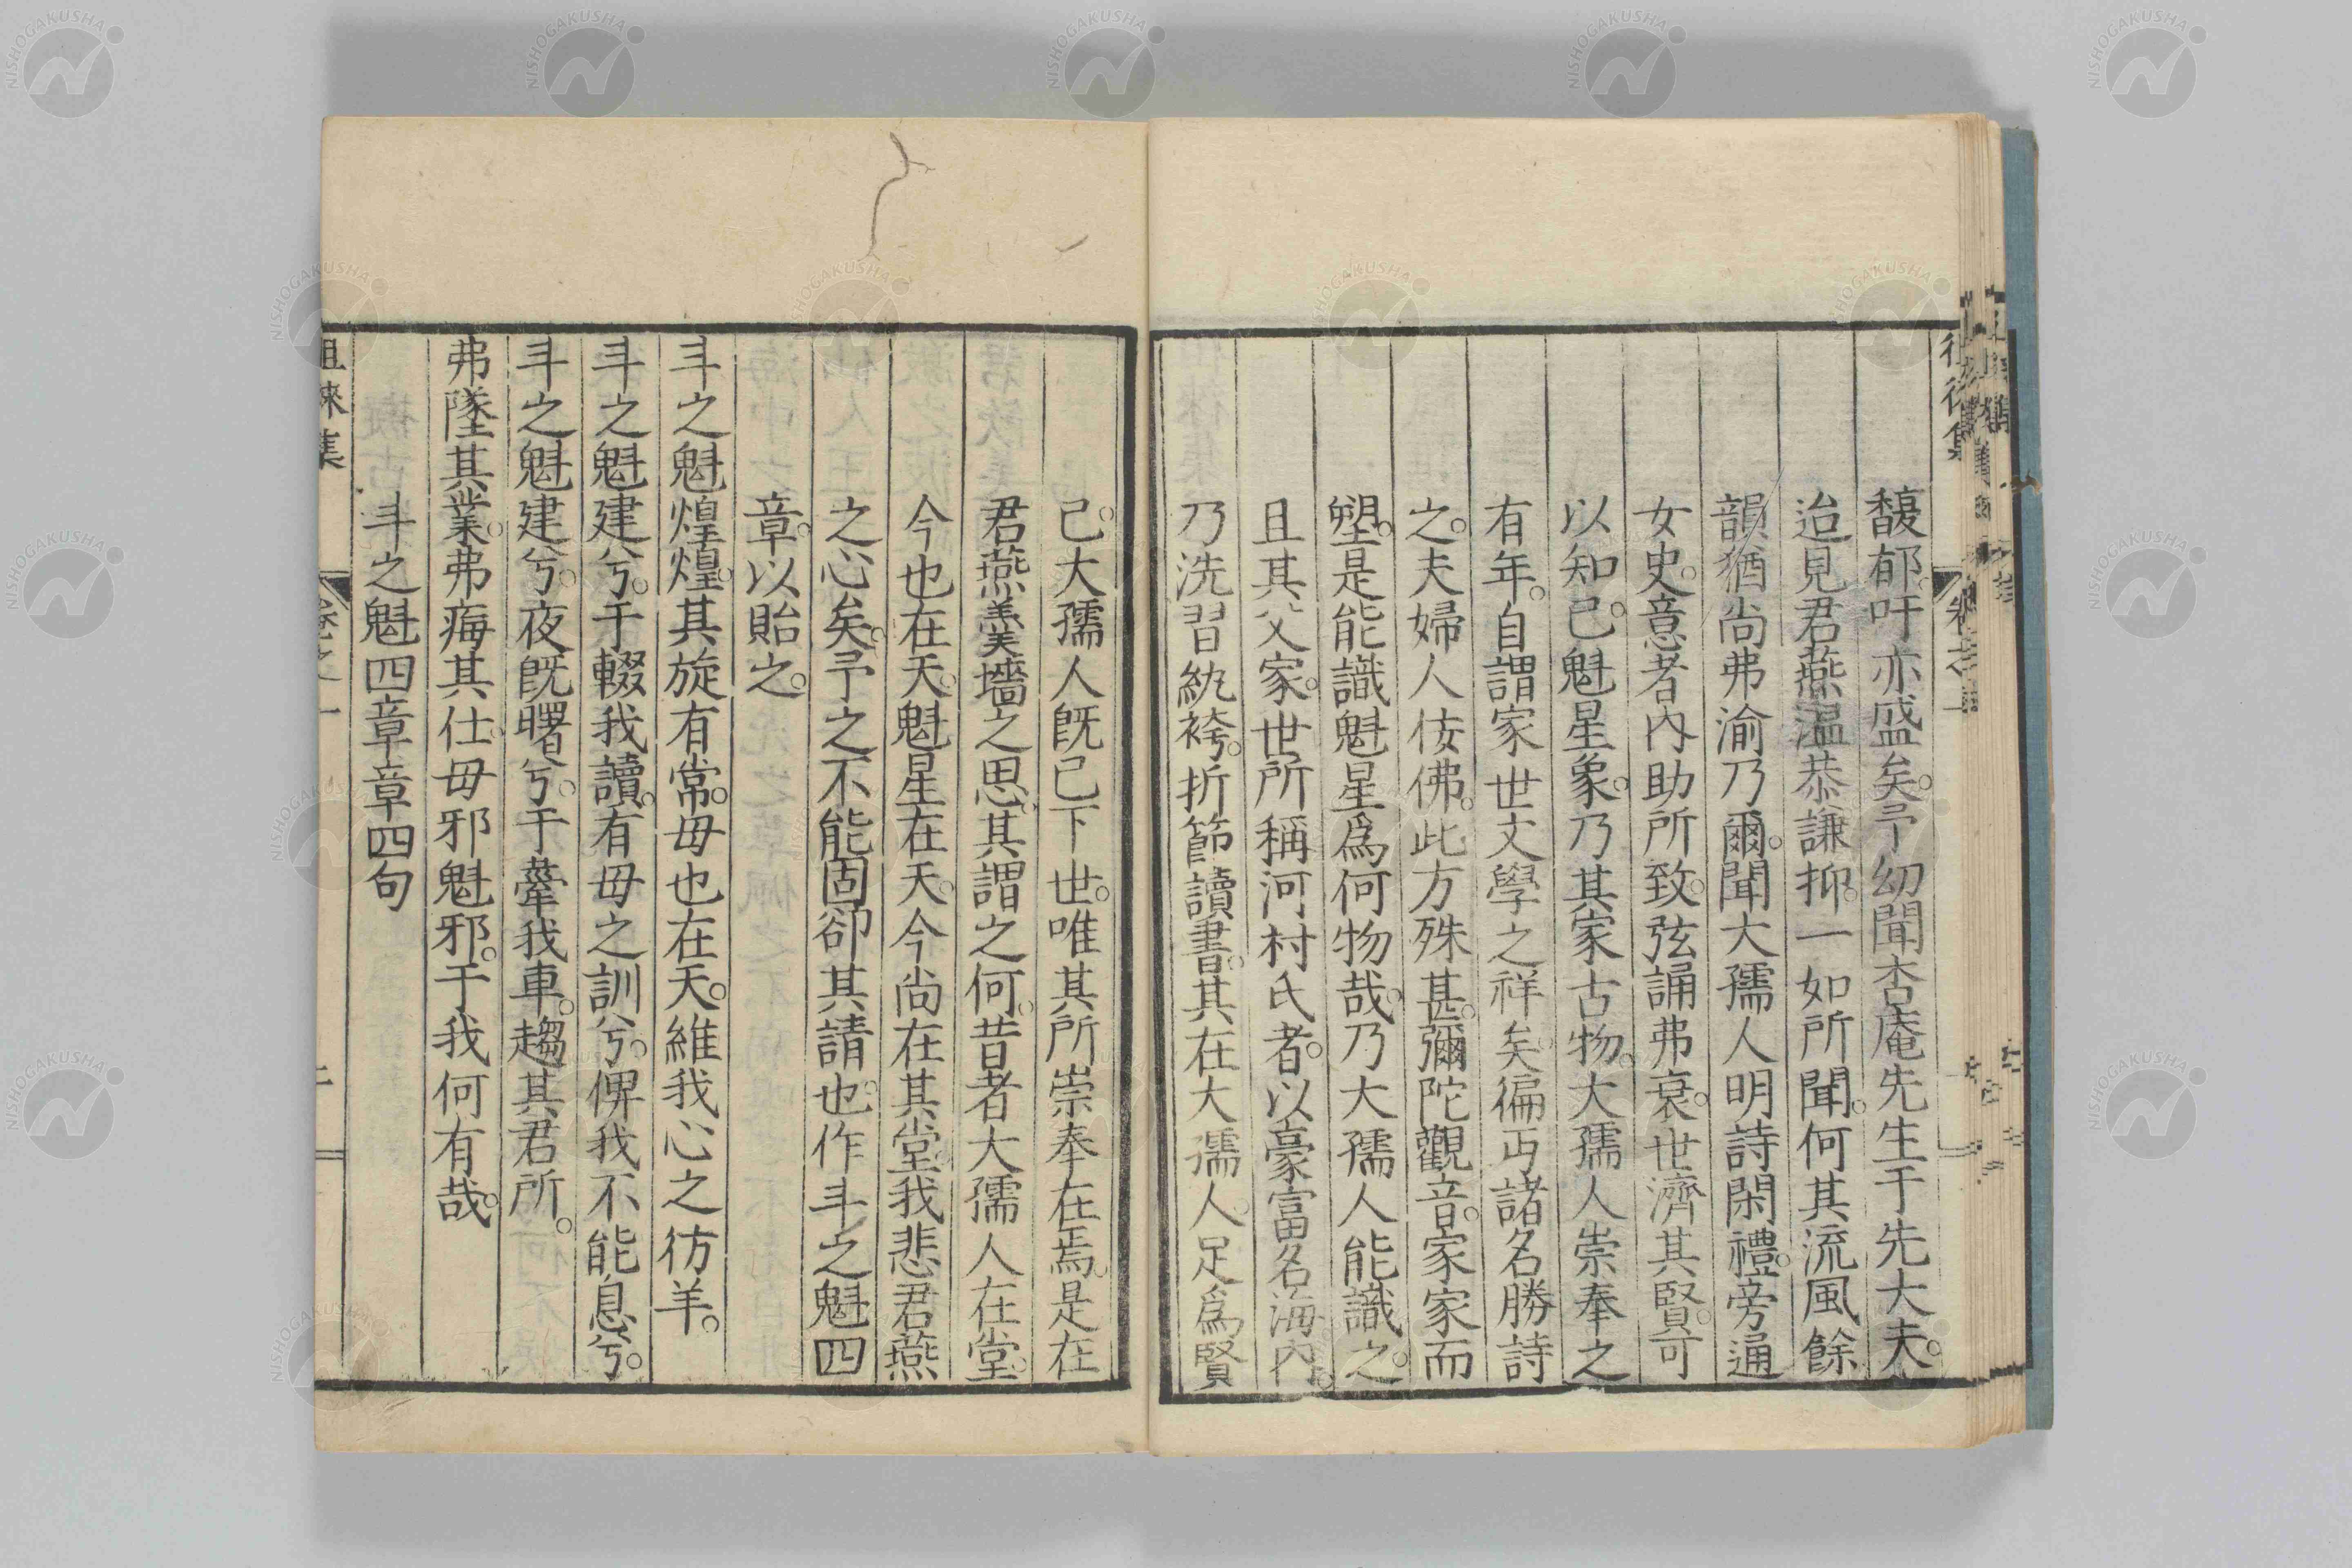 馥郁。吁亦盛矣。予幼聞杏庵先生于先大夫。
迨見君燕溫恭謙抑。一如所聞。何其流風餘
韻猶尚弗渝乃爾。聞大孺人明詩閑禮。旁通
女史。意者內助所致。弦誦弗衰。世濟其賢。可
以知已。魁星象。乃其家古物。大孺人崇奉之
有年。自謂家世文學之祥矣。徧丐諸名勝詩
之。夫婦人佞佛。此方殊甚。彌陀觀音。家家而
塑。是能識魁星為何物哉。乃大孺人能識之。
且其父家。世所稱河村氏者。以豪富名海內。
乃洗習紈袴。折節讀書。其在大孺人。足為賢
已。大孺人既已下世。唯其所崇奉在焉。是在
君燕羹墻之思。其謂之何。昔者大孺人在堂。
今也在天。魁星在天。今尚在其堂。我悲君燕
之心矣。予之不能固卻其請也。作斗之魁四
章。以貽之。
斗之魁煌煌。其旋有常。毋也在天。維我心之彷羊。
斗之魁建兮。于輟我讀。有毋之訓兮。俾我不能息兮。
斗之魁建兮。夜既曙兮。于鞶我車。趨其君所。
弗墜其業。弗痗其仕。毋邪魁邪。于我何有哉。
斗之魁四章章四句
徂徠集
卷之一
NISHOGAKUSHA